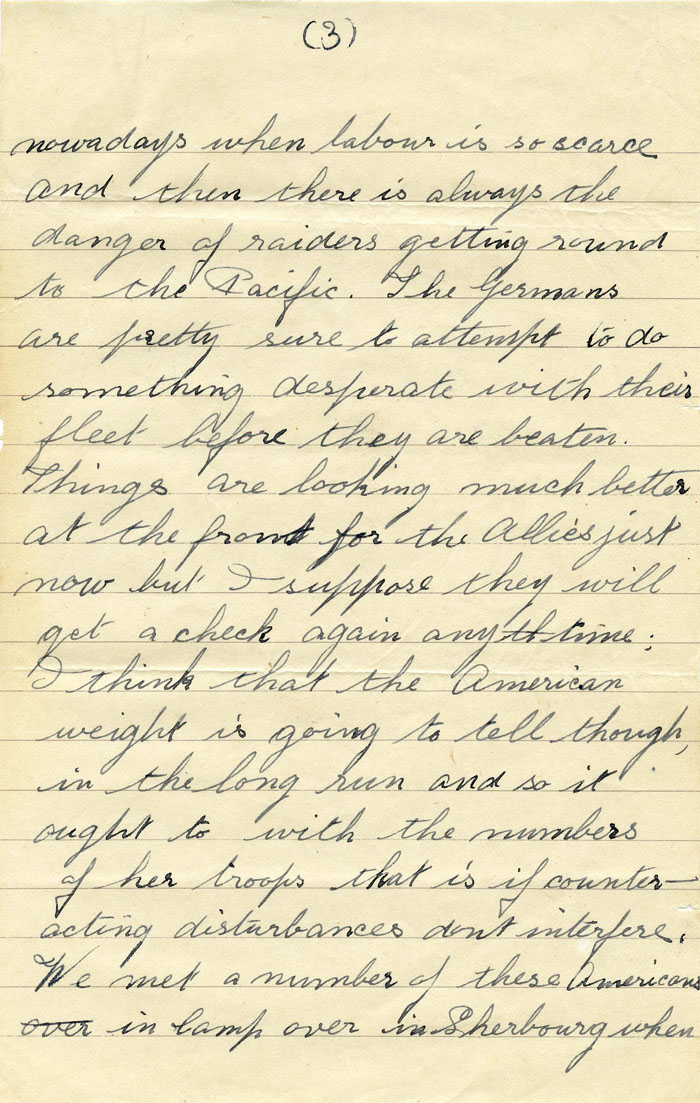 (3)
nowadays when labour is so scarce
and then there is always the
danger of raiders getting round
to the Pacific. The Germans
are pretty sure to attempt to do
something desperate with their
fleet before they are beaten.
Things are looking much better
at the front for the Allies just
now but I suppose they will
get a check again any th time;
I think that the American
weight is going to tell though,
in the long run and so it
ought to with the numbers
of her troops that is if counter-
acting disturbances dont interfere.
We met a number of these Americans
over in camp over in Sherbourg when